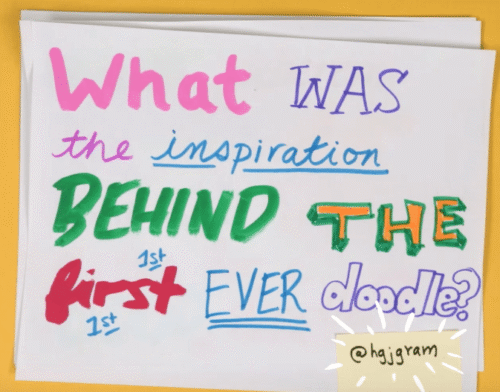 What WAS
the inspiration
BEHIND THE
1st
first EVER doodle?
1st
@hgjgram